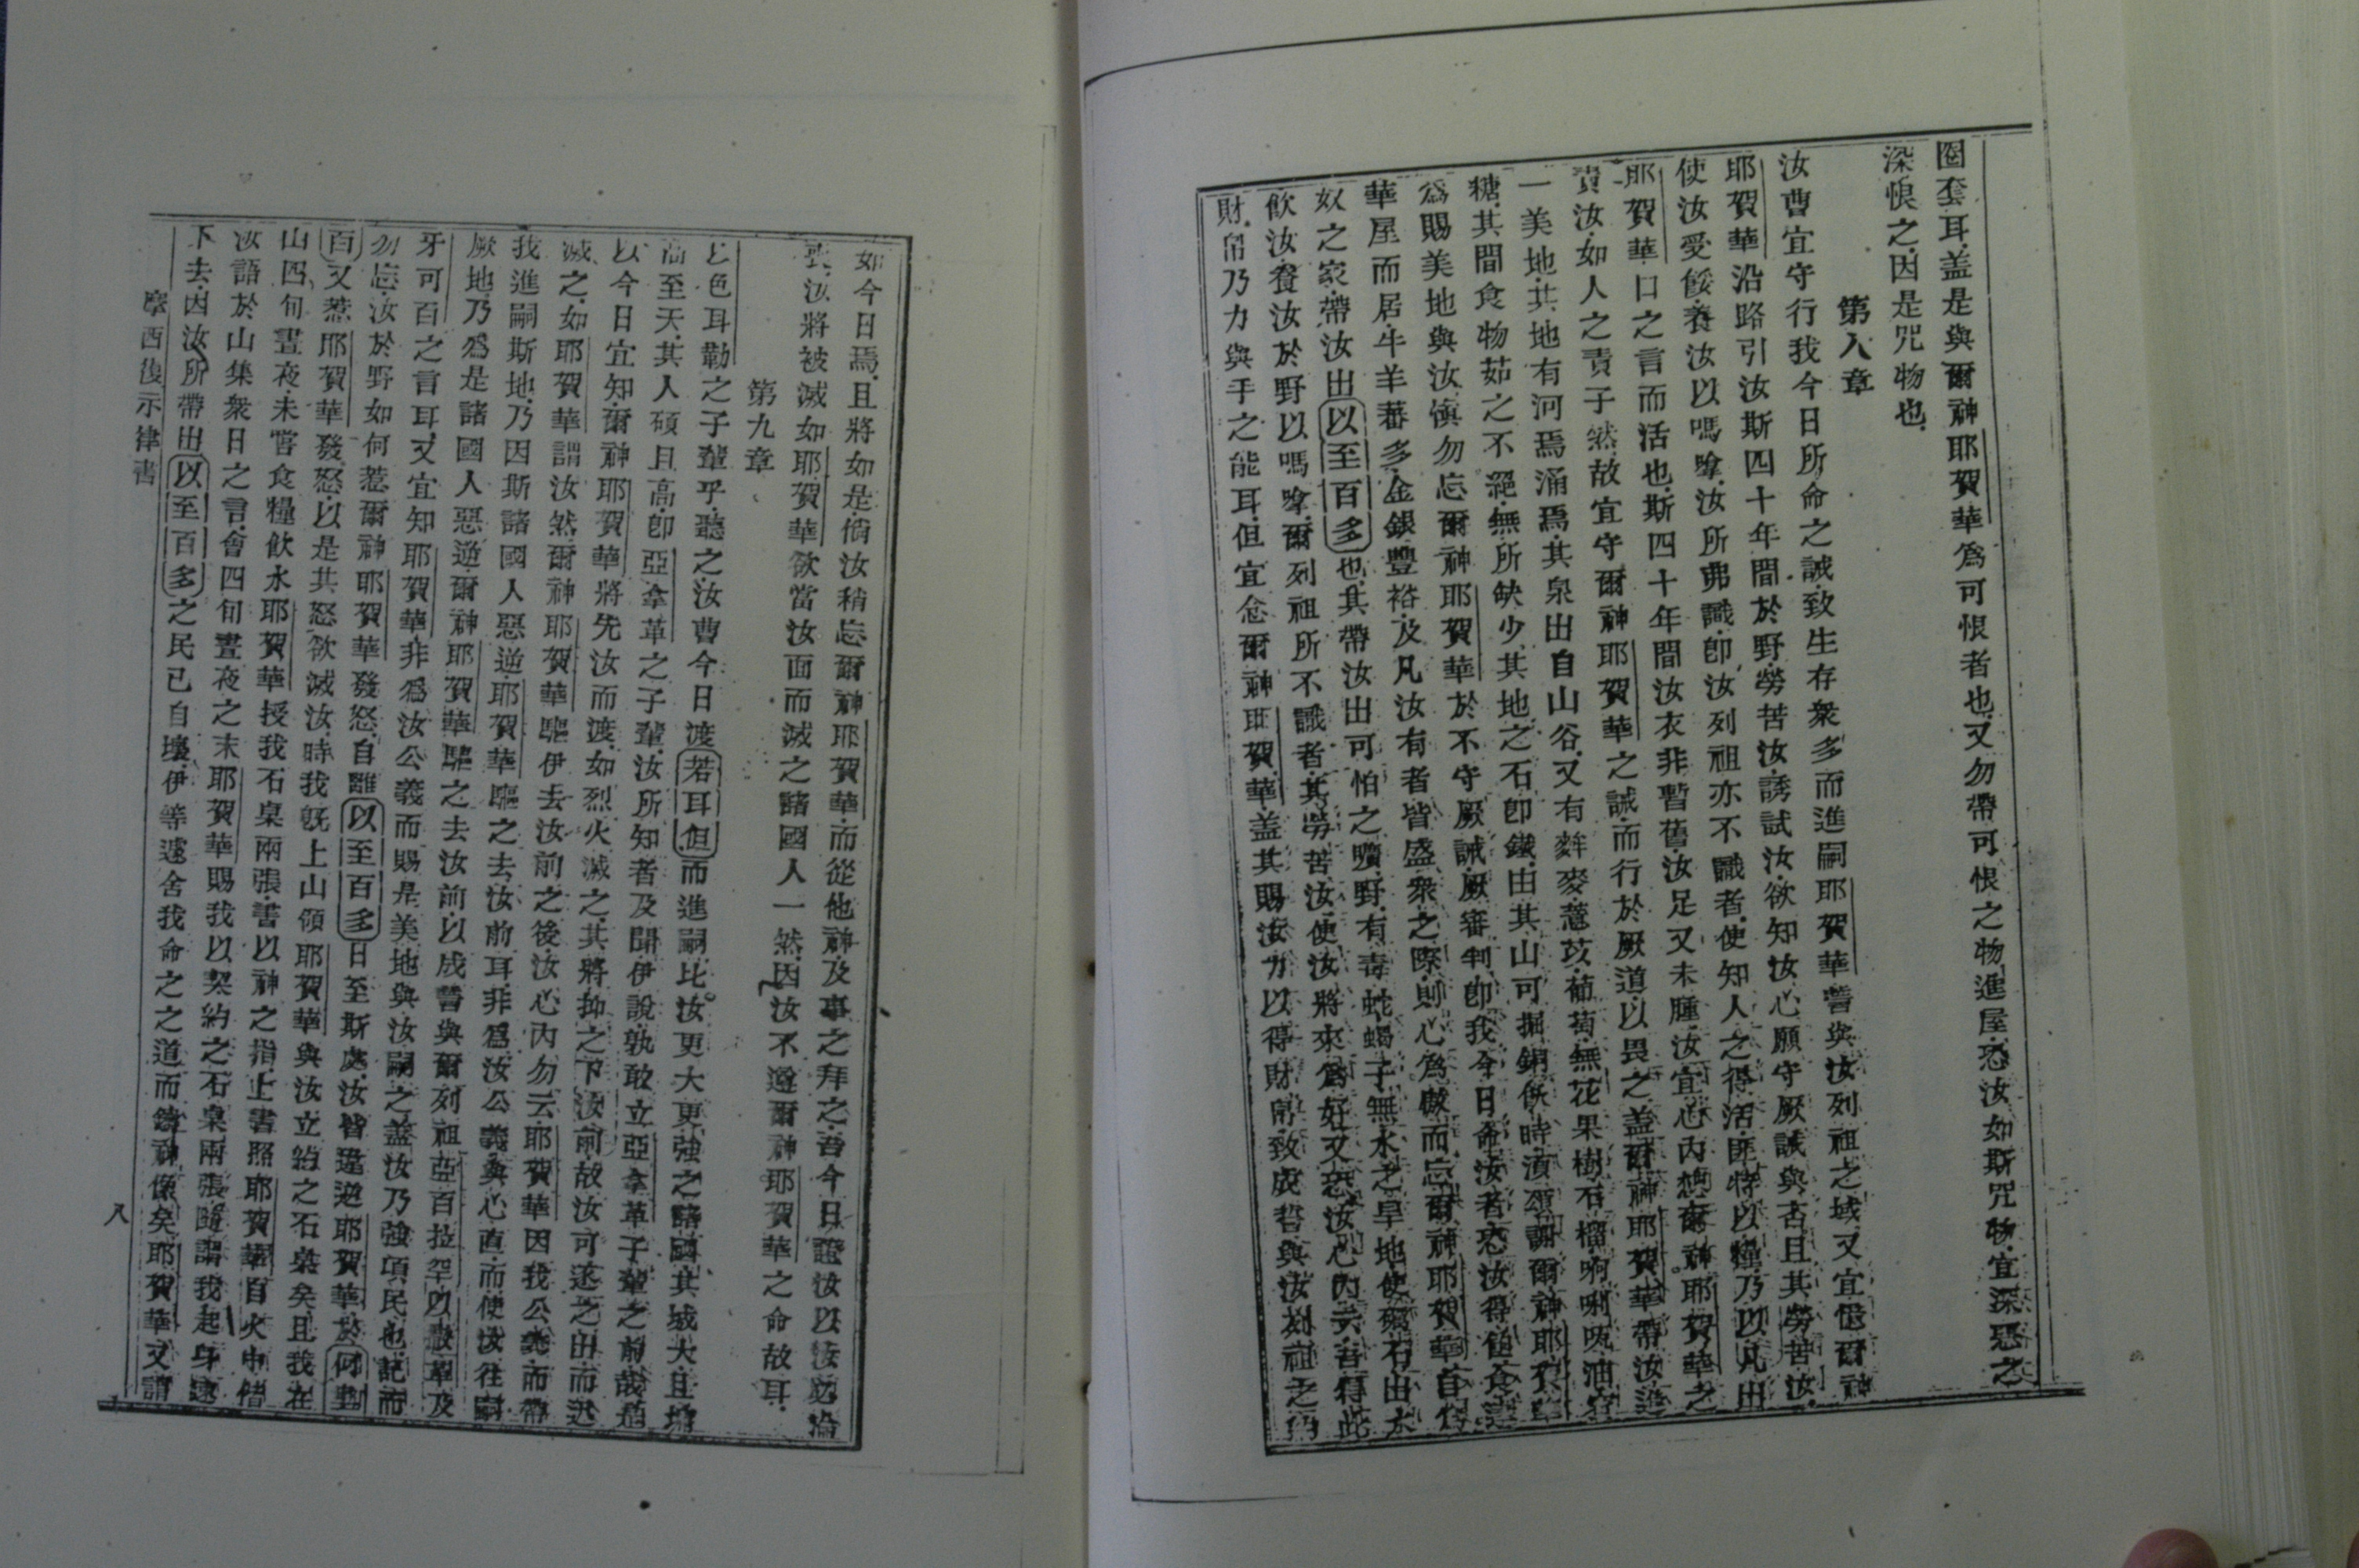 圈套耳盖是與爾神耶賀華爲可恨者也又勿帶可恨之物進屋恐汝如斯咒物宜深惡之
深恨之因是咒物也
第八章
汝曹宜守行我今日所命之誡致生存衆多而進嗣耶賀華誓與汝列祖之域又宜憶爾神
耶賀華沿路引汝斯四十年間於野勞苦汝誘試汝欲知汝心願守厥誡與否且其勞苦汝
使汝受餒養汝以嗎嗱汝所弗識卽汝列祖亦不識者使知人之得活匪特以糧乃以凡出
耶賀華口之言而活也斯四十年間汝衣非暫舊汝足又未腫汝宜心內想爾神耶賀華之
責汝如人之責子然故宜守爾神耶賀華之誡而行於厥道以畏之盖爾神耶賀華帶汝進
一美地其地有河焉涌焉其泉出自山谷又有麰麥薏苡葡萄無花果樹石榴啊唎吺油
糖其間食物茹之不絕無所缺少其地之石卽鐵由其山可掘銅 時 爾神耶賀華
爲賜美地與汝愼勿忘爾神耶賀華於不守厥誡厥審判卽我今日命汝者恐汝得飽食
華屋而居牛羊蕃多金銀豐裕及凡汝有者皆盛衆之際則心爲傲而忘爾神耶賀華
奴之家帶汝出以至百多也其帶汝出可怕之曠野有毒蛇蝎子無水之旱地使磺石出水
飲汝養汝於野以嗎嗱爾列祖所不識者其勞苦汝使汝將來爲好又恐汝心內云吾得此
財帛乃力與手之能耳但宜念爾神耶賀華盖其賜汝力以得財帛致成 與汝列祖之約
如今日焉且將如是倘汝稍忘爾神耶賀華而從他神及事之拜之吾今日證汝以汝必淪
喪汝將被滅如耶賀華欲當汝面而滅之諸國人一然因汝不遵爾神耶賀華之命故耳
第九章
以色耳勒之子輩乎聽之汝曹今日渡若耳但而進嗣比汝更大更強之諸國其城大且墻
高至天其人碩且高卽亞拿革之子輩汝所知者及聞伊說孰敢立亞拿革子輩之前哉是
以今日宜知爾神耶賀華將先汝而渡如烈火滅之其將抑之下汝前故汝可逐之出而迅
滅之如耶賀華謂汝然爾神耶賀華驅伊去汝前之後汝心內勿云耶賀華因我公義而帶
我進嗣斯地乃因斯諸國人惡逆耶賀華驅之去汝前耳非爲汝公義與心直而使汝往嗣
厥地乃爲是諸國人惡逆爾神耶賀華驅之去汝前以成誓與爾列祖亞百拉罕以撒革及
牙可百之言耳又宜知耶賀華非爲汝公義而賜是美地與汝嗣之盖汝乃強項民也記而
勿忘汝於野如何惹爾神耶賀華發怒自離以至百多日至斯處汝皆違逆耶賀華於何
百又惹耶賀華發怒以是其怒欲滅汝時我旣上山領耶賀華與汝立約之石桌矣且我在
山四旬晝夜未嘗食糧飲水耶賀華授我石桌兩張書以神之指上書照耶賀華自火中偕
汝語於山集衆日之言會四旬晝夜之末耶賀華賜我以契約之石桌兩張隨謂我起身速
下去因汝所帶出以至百多之民已自壞伊等遽舍我命之之道而鑄神像矣耶賀華又謂
摩西復示律書
八